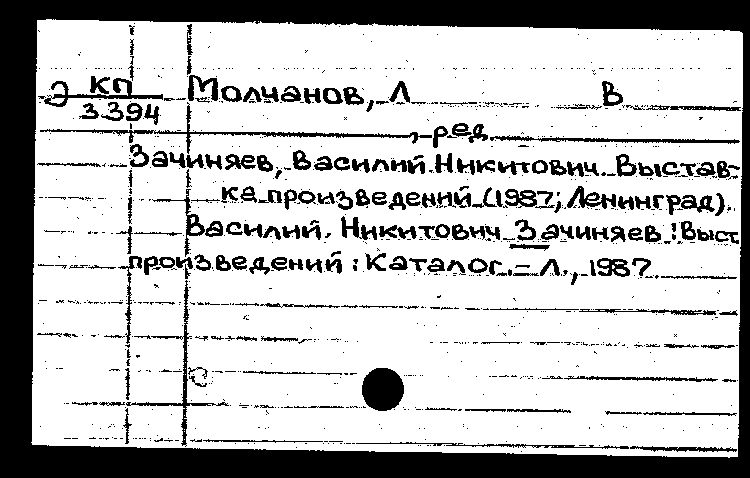 Э КП Молчанов, Л В
3.394
, ред.
Зачиняев, Василий Никитович. Выстав-
ка произведений (1987; Ленинград).
Василий Никитович Зачиняев : Выст
произведений : Каталог. - Л., 1987